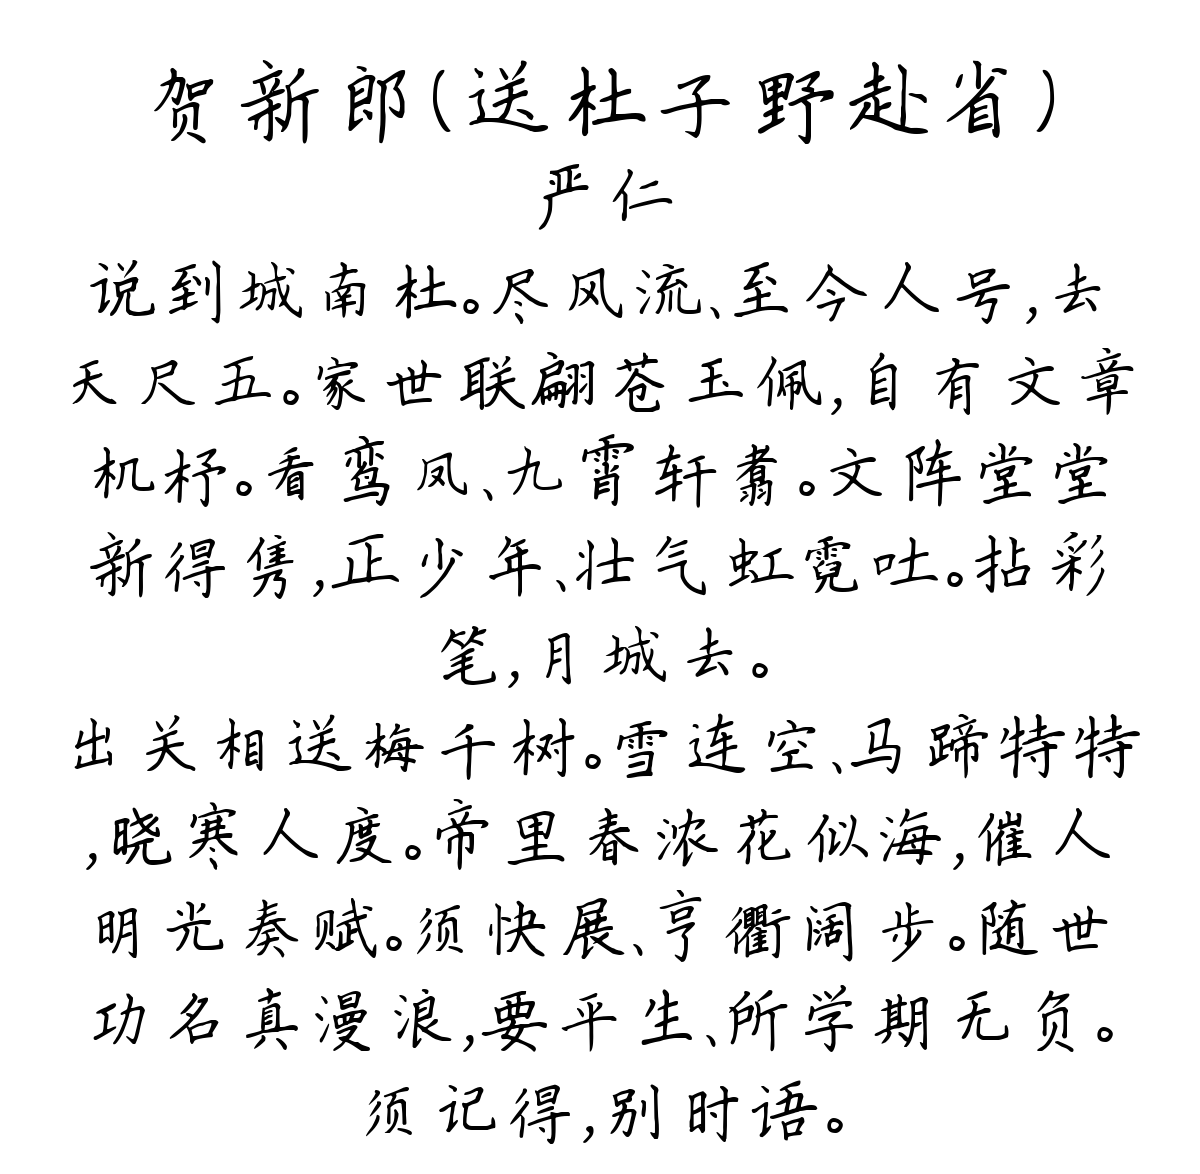 贺新郎(送杜子野赴省)
严仁
说到城南杜。尽风流、至今人号,去
天尺五。家世联翩苍玉佩,自有文章
机杼。看鸾凤、九霄轩翥。文阵堂堂
新得隽,正少年、壮气虹霓吐。拈彩
笔,月城去。
出关相送梅千树。雪连空、马蹄特特
,晓寒人度。帝里春浓花似海,催人
明光奏赋。须快展、亨衢阔步。随世
功名真漫浪,要平生、所学期无负。
须记得,别时语。